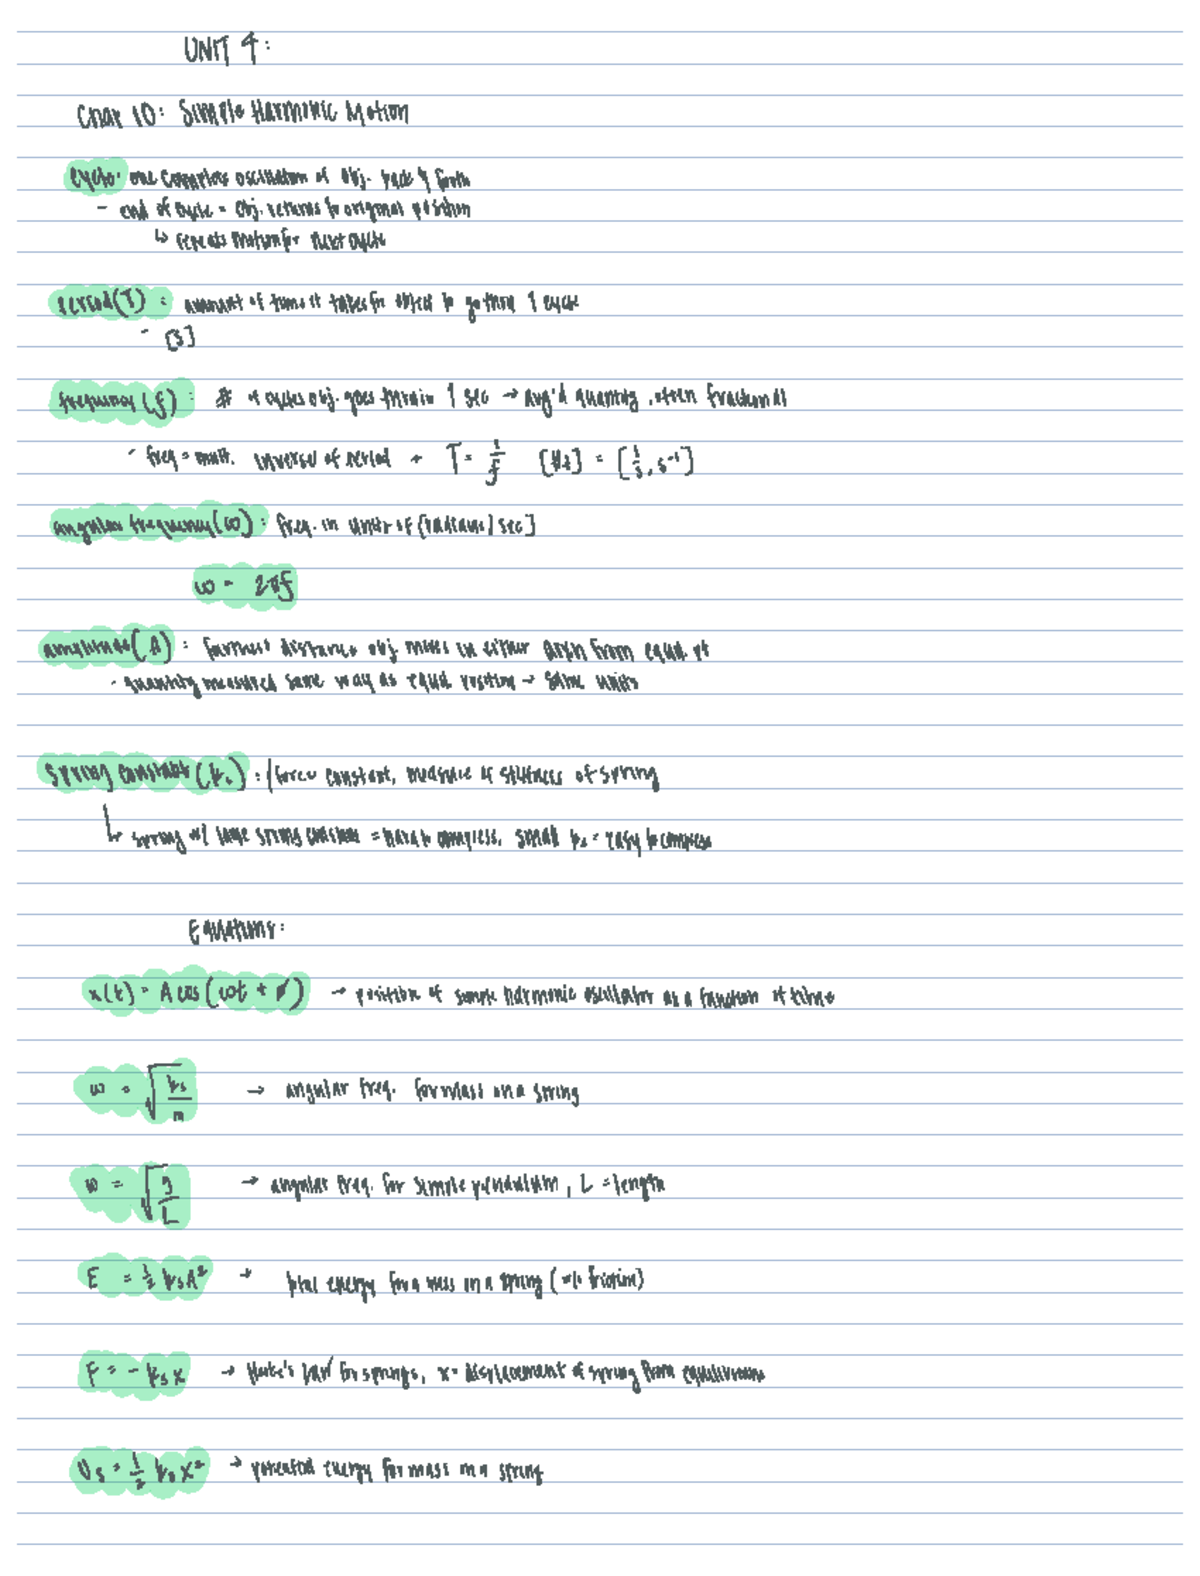 UNIT 4:
Chap 10: Simple Harmonic Motion
cycle: one complete oscillation of obj. back & forth
- end of cycle = obj. returns to original position
↳ repeats motion for next cycle
period(T): amount of time it takes for object to go thru 1 cycle
- [s]
frequency(f): # of cycles obj. goes thru in 1 sec → avg'd quantity, often fractional
- freq = mult. inverse of period → T = 1/f [Hz] = [1/s, s⁻¹]
angular frequency(ω): freq. in units of [radians/sec]
ω = 2πf
amplitude(A): farthest distance obj. moves in either dir'n from equil. pt
- quantity measured same way as equil. position → same units
spring constant(kₛ): force constant, measure of stiffness of spring
↳ spring w/ large spring constant = hard to compress, small kₛ = easy to compress
Equations:
x(t) = A cos(ωt + ϕ) → position of simple harmonic oscillator as a function of time
ω = √(kₛ/m) → angular freq. for mass on a spring
ω = √(g/L) → angular freq. for simple pendulum, L = length
E = ½ kₛA² → total energy for a mass on a spring (w/o friction)
F = -kₛx → Hooke's Law for springs, x = displacement of spring from equilibrium
Uₛ = ½ kₛx² → potential energy for mass on a spring